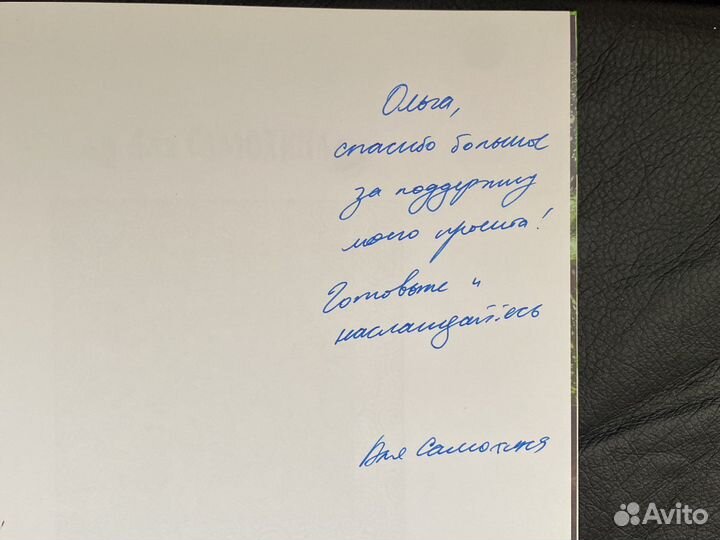 Ольга,
спасибо большое
за поддержку
моего проекта!
Готовьте и
наслаждайтесь
Аня
Avito